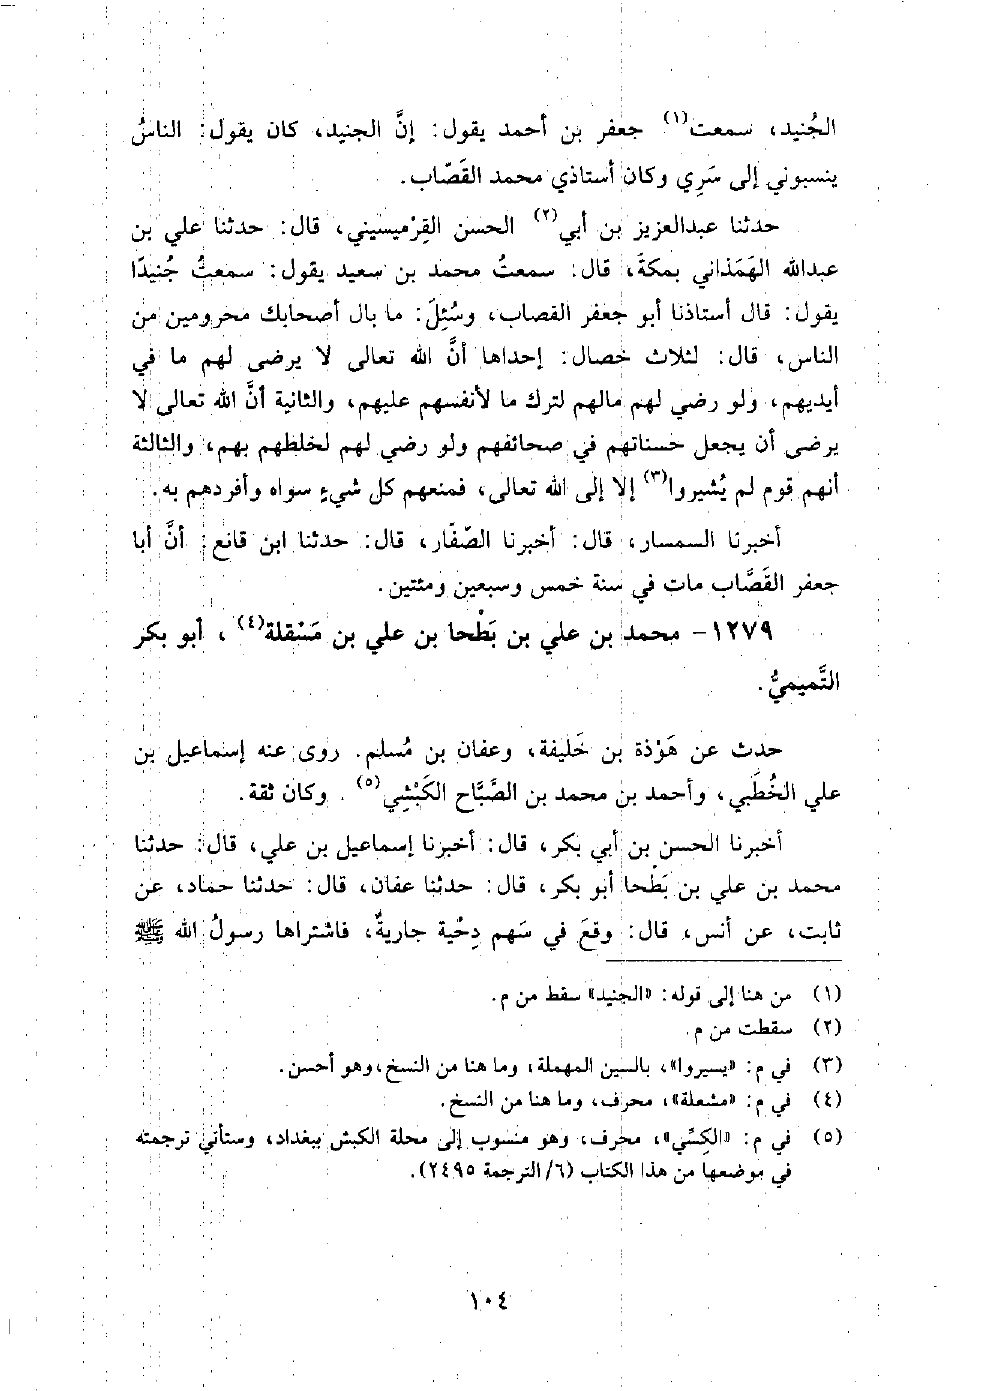 الجُنيد، سمعت(١) جعفر بن أحمد يقول: إنَّ الجنيد، كان يقول: الناسُ
ينسبوني إلى سَرِي وكان أستاذي محمد القَصّاب.
حدثنا عبدالعزيز بن أبي(٢) الحسن القِرْميسيني، قال: حدثنا علي بن
عبدالله الهَمَذاني بمكةَ، قال: سمعتُ محمد بن سعيد يقول: سمعتُ جُنيدًا
يقول: قال أستاذنا أبو جعفر القصاب، وسُئِلَ: ما بال أصحابك محرومين من
الناس، قال: لثلاث خصال: إحداها أنَّ الله تعالى لا يرضى لهم ما في
أيديهم، ولو رضي لهم مالهم لترك ما لأنفسهم عليهم، والثانية أنَّ الله تعالى لا
يرضى أن يجعل حسناتهم في صحائفهم ولو رضي لهم لخلطهم بهم، والثالثة
أنهم قوم لم يُشيروا(٣) إلا إلى الله تعالى، فمنعهم كل شيءٍ سواه وأفردهم به.
أخبرنا السمسار، قال: أخبرنا الصّفّار، قال: حدثنا ابن قانع: أنَّ أبا
جعفر القَصَّاب مات في سنة خمس وسبعين ومئتين.
١٢٧٩- محمد بن علي بن بَطْحا بن علي بن مَسْقلة(٤)، أبو بكر
التَّميميُّ.
حدث عن هَوْذة بن خَليفة، وعفان بن مُسلم. روى عنه إسماعيل بن
علي الخُطَبي، وأحمد بن محمد بن الصَّبَّاح الكَبْشِي(٥). وكان ثقة.
أخبرنا الحسن بن أبي بكر، قال: أخبرنا إسماعيل بن علي، قال: حدثنا
محمد بن علي بن بَطْحا أبو بكر، قال: حدثنا عفان، قال: حدثنا حماد، عن
ثابت، عن أنس، قال: وقعَ في سَهم دِحْية جاريةٌ، فاشتراها رسولُ الله ﷺ
(١) من هنا إلى قوله: «الجنيد» سقط من م.
(٢) سقطت من م.
(٣) في م: «يسيروا»، بالسين المهملة، وما هنا من النسخ، وهو أحسن.
(٤) في م: «مشعلة»، محرف، وما هنا من النسخ.
(٥) في م: «الكِسِّي»، محرف، وهو منسوب إلى محلة الكبش ببغداد، وستأتي ترجمته
في موضعها من هذا الكتاب (٦/ الترجمة ٢٤٩٥).
١٠٤